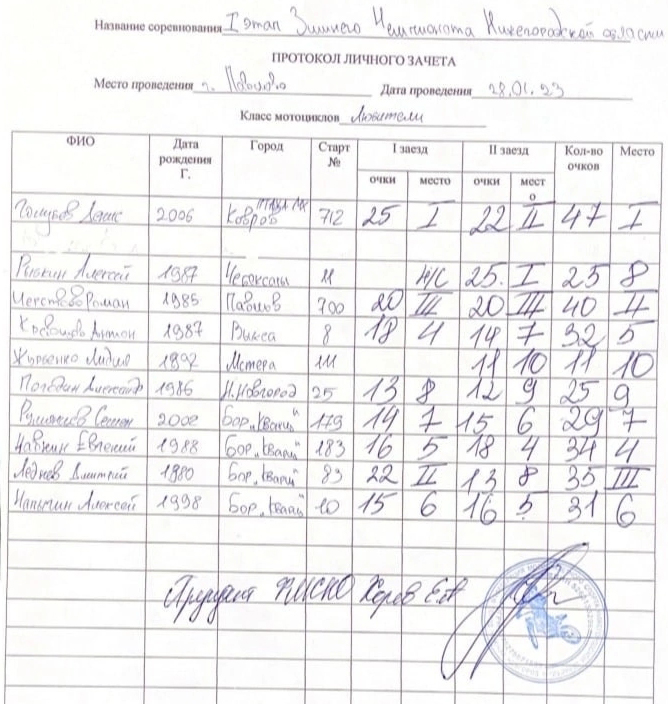 Название соревнования I этап Зимнего Чемпионата Нижегородской области
ПРОТОКОЛ ЛИЧНОГО ЗАЧЕТА
Место проведения г. Павлово Дата проведения 28.01.23
Класс мотоциклов Любители
ФИО Дата рождения Г. Город Старт № I заезд II заезд Кол-во очков Место
очки место очки место
Голубов Денис 2006 Ковров 712 25 I 22 II 47 I
Рыбкин Алексей 1987 Чебоксары 11 Н/С 25. I 25 8
Роман 1985 Павлов 700 20 III 20 III 40 II
Антон 1987 Выкса 8 18 4 14 7 32 5
1992 Мстера 111 11 10 11 10
Погодин Александр 1986 Н.Новгород 25 13 8 12 9 25 9
Семен Бор „Кварц" 179 14 7 15 6 29 7
Евгений 1988 Бор „Кварц" 183 16 5 18 4 34 4
Леднев Дмитрий 1980 Бор „Кварц" 83 22 II 13 8 35 III
Алексей 1998 Бор „Кварц" 10 15 6 16 5 31 6
ФМСНО